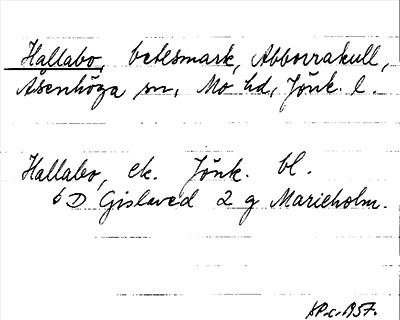 Hallabo, betesmark, Abborrakull,
Åsenhöga sn, Mo hd, Jönk. l.
Hallabo, ek. Jönk. bl.
6 D Gislaved 2 g Marieholm.
1957.